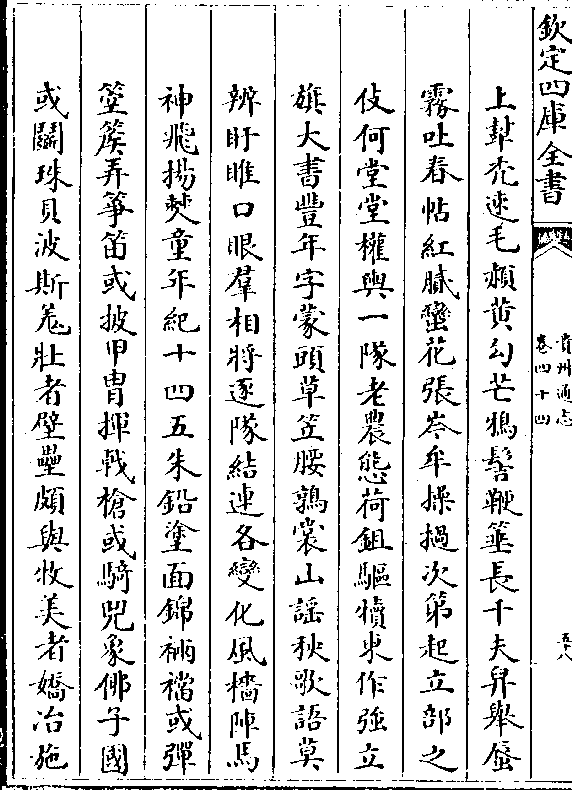 欽定四庫全書
貴州通志
卷四十四
五十八
上犎禿速毛頳黄勾芒鵶髻鞭箠長千夫舁舉蜃
霧吐春帖紅膩蠻花張岑牟操撾次第起立部之
伎何堂堂權輿一隊老農態荷鉏驅犢東作強立
旗大書豐年字蒙頭草笠腰鶉裳山謡秧歌語莫
辨盱睢口眼羣相將逐隊結連各變化風檣陣馬
神飛揚㸑童年紀十四五朱鉛塗面錦裲襠或彈
箜篌弄箏笛或披甲胄揮戟槍或騎兕象佛子國
或鬭珠貝波斯羗壯者壁壘頗與牧美者嬌冶施